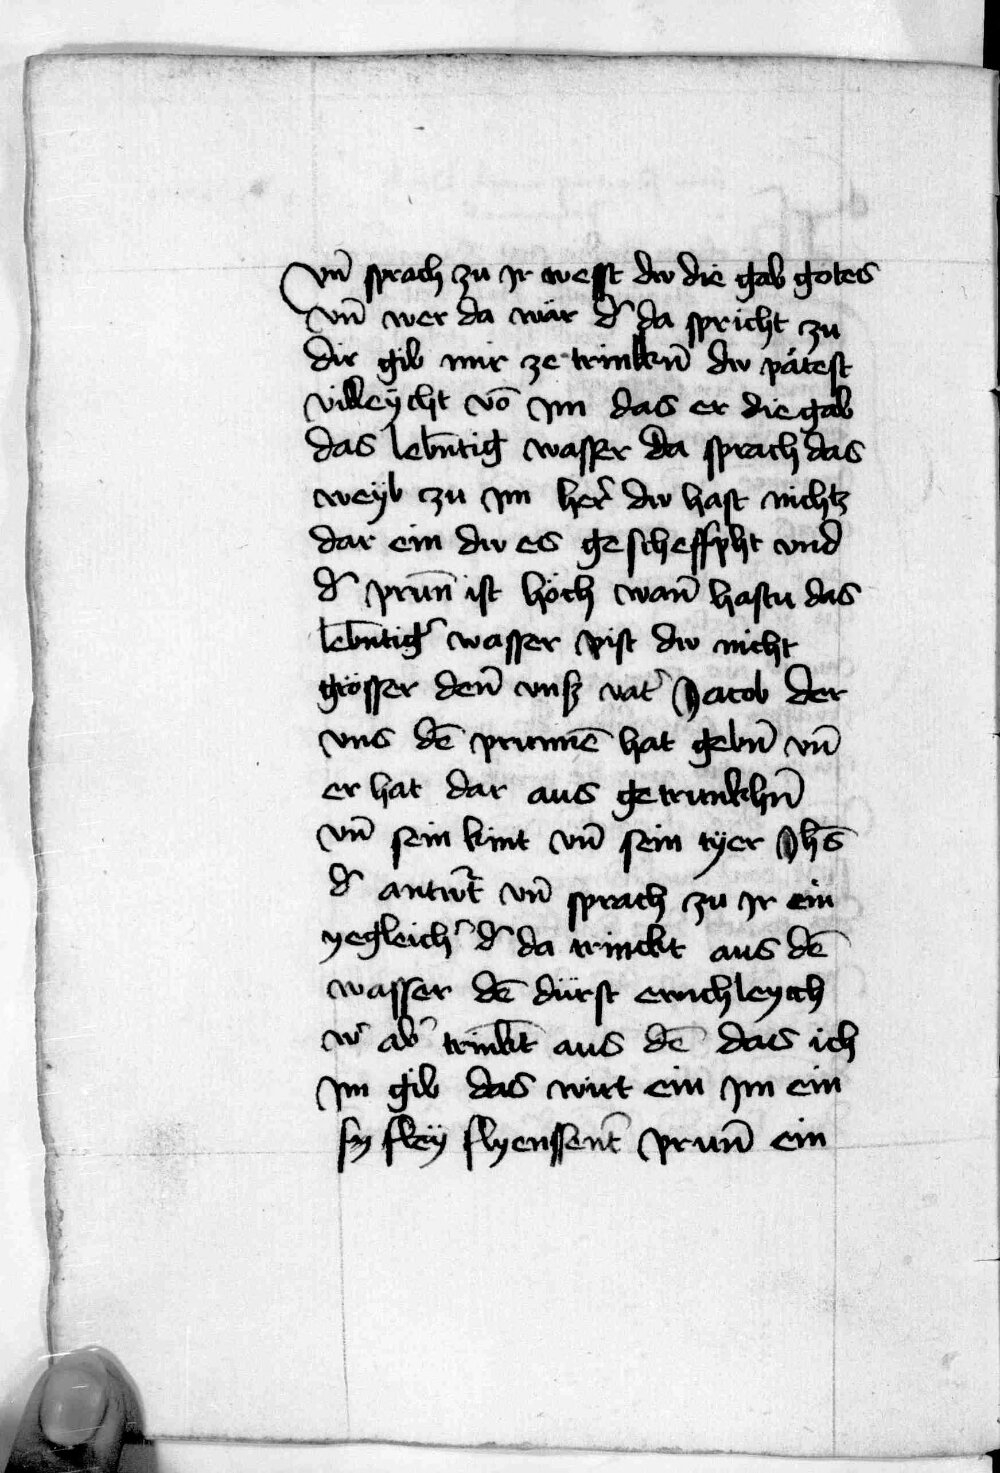 vn̄ sprach zu Jr wesst dw die gab gotes
vn̄ wer da wär d̾ da spricht zu
dir gib mir ze trinkn̄ dw pätest
villeÿcht vō Jm das er die gab
das lebn̄tig wasser da sprach das
weÿb zu Jm her̄ dw hast nichtz
dar ein dw es gescheffpht vnd
d̾ prun̄ ist höch wan̄ hastu das
lebn̄tig̾ wasser pist dw nicht
grösser den̄ vnß vat̾ Jacob der
vns dē prunnē hat gebn̄ vn̄
er hat dar aus getrunkhn̄
vn̄ sein kint vn̄ sein tÿer Jhs̄
d̾ antw̾t vn̄ sprach zu Jr ein
yegleich̾ d̾ da trinckt aus dē
wasser dē dürst
w̾ ab̾ trinkt̄ aus dē das ich
Jm gib das wirt ein Jm ein
flyenssent̄ prun̄ ein